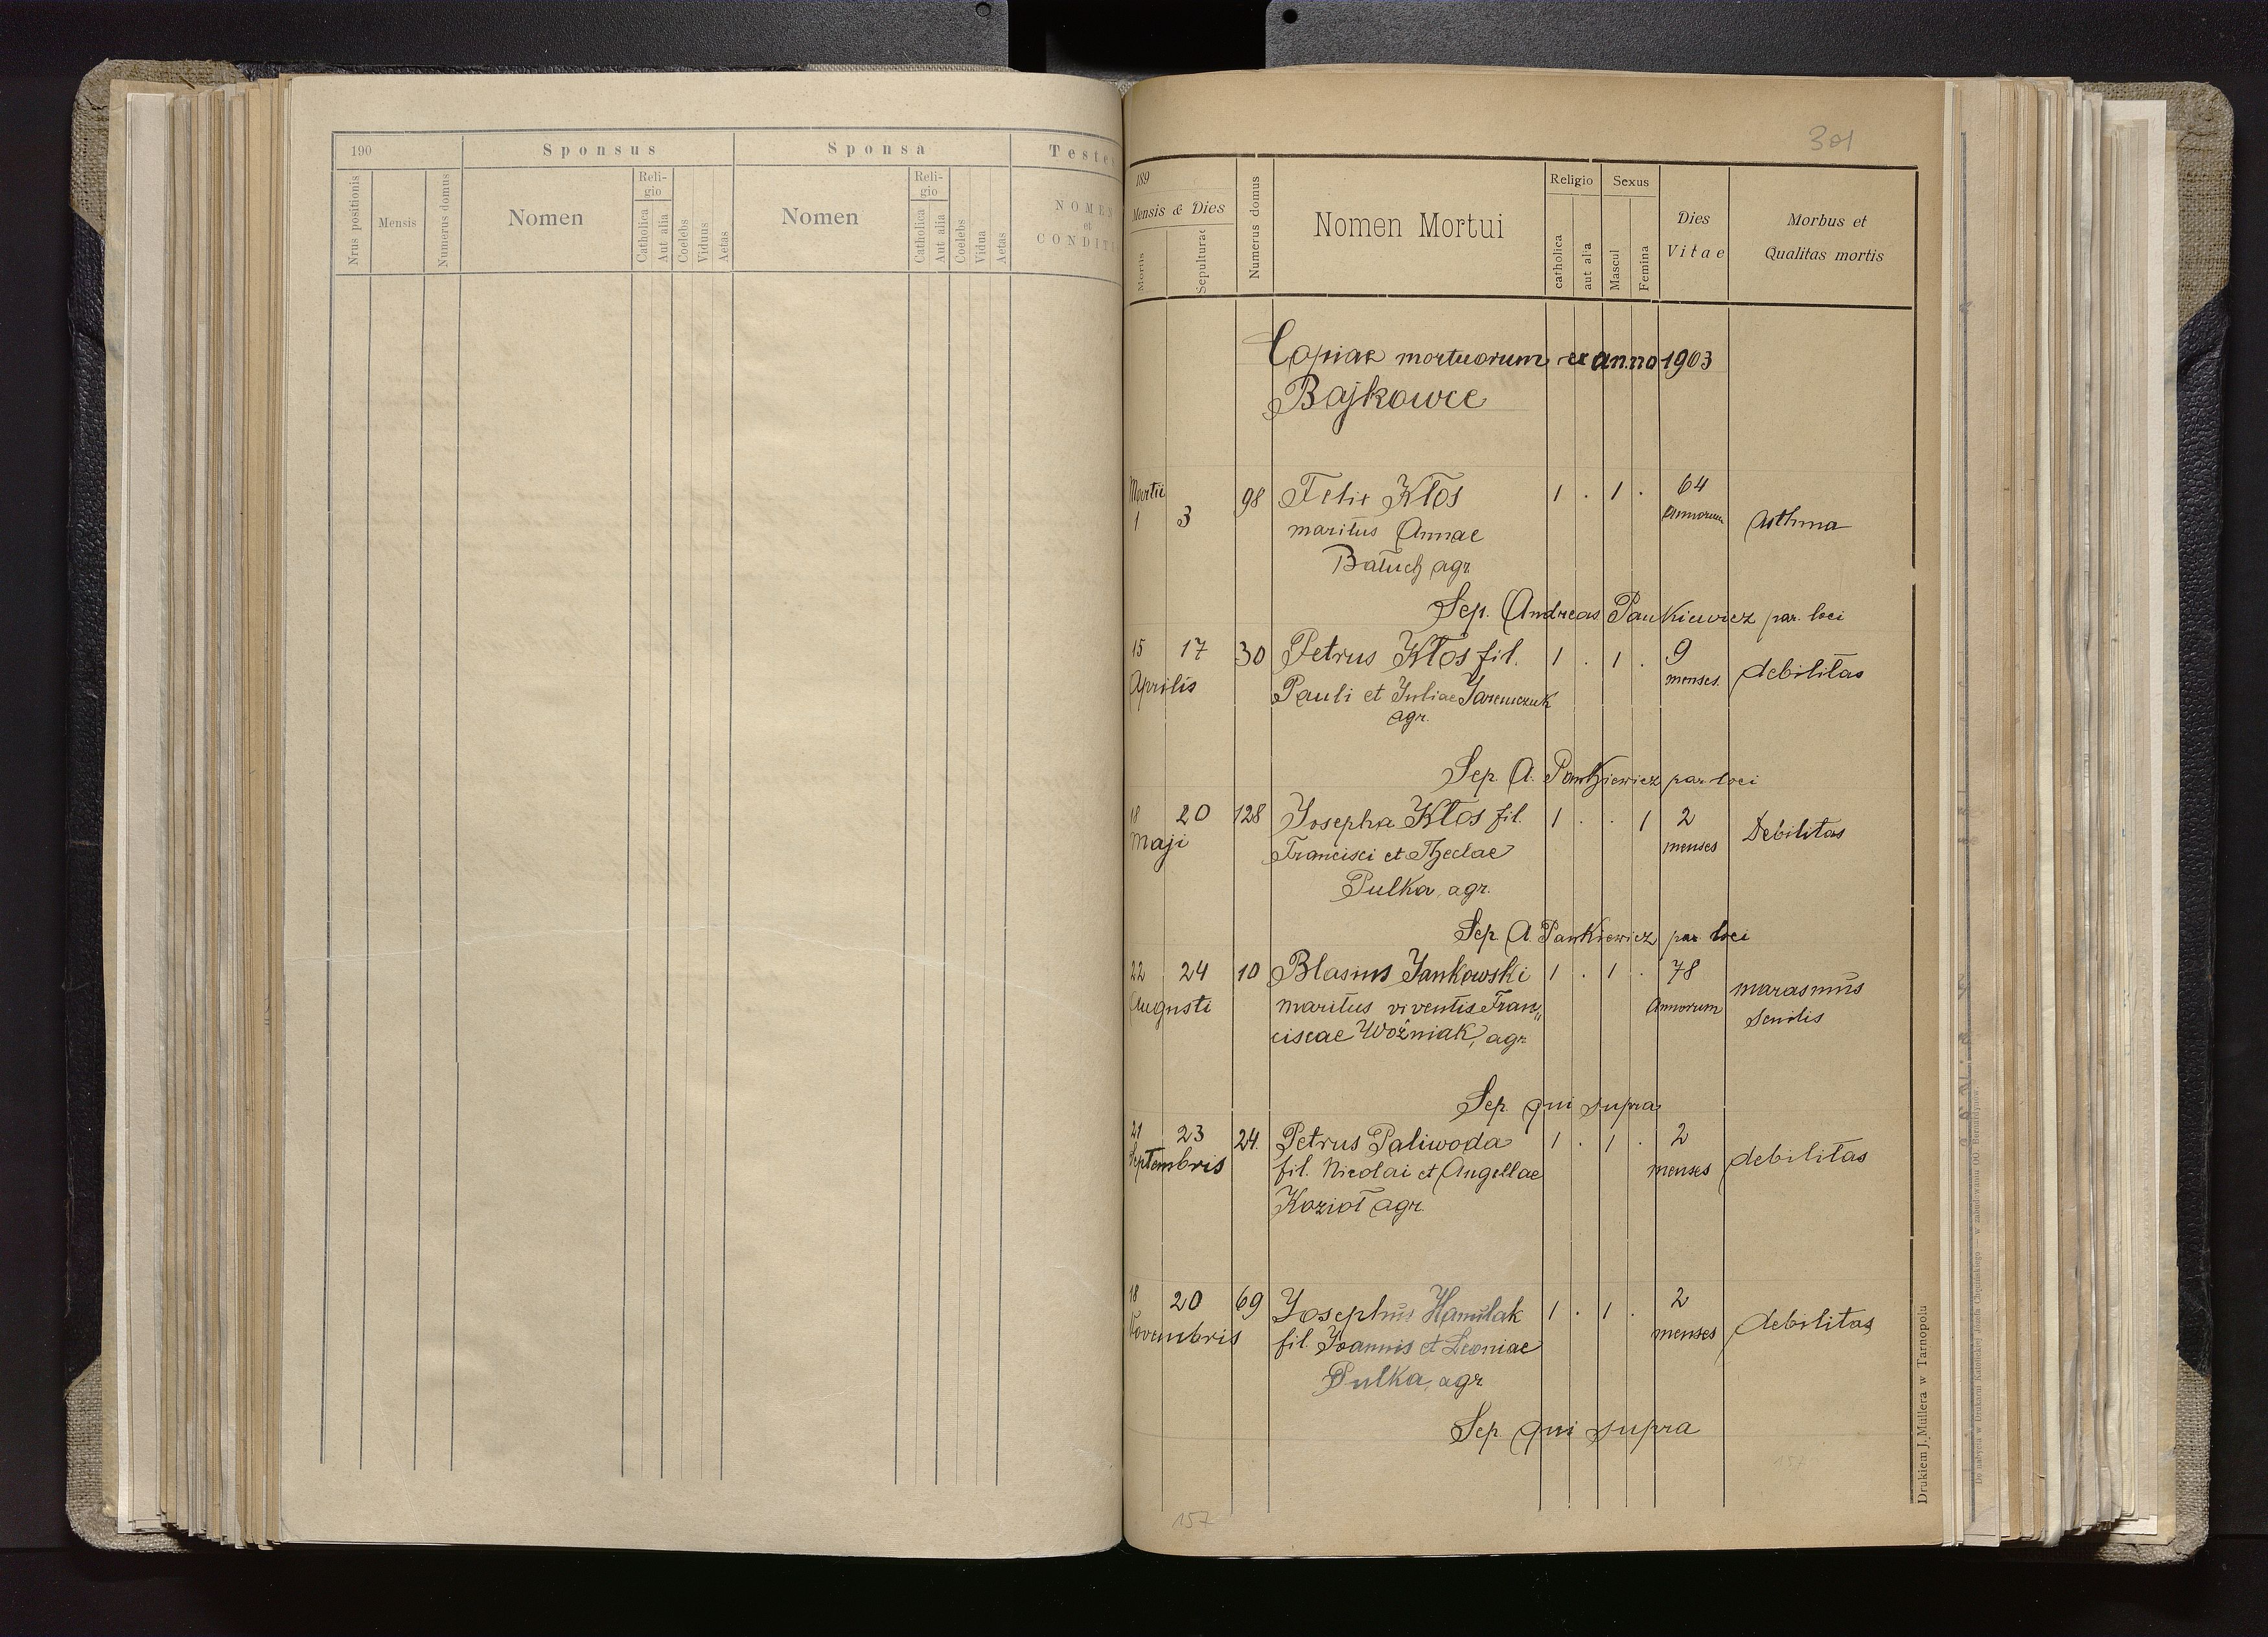 190
Sponsus
Sponsa
Testes
Nrus positionis
Mensis
Numerus domus
Nomen
Reli-
gio
Catholica
Aut alia
Coelebs
Viduus
Aetas
Nomen
Reli-
gio
Catholica
Aut alia
Coelebs
Vidua
Aetas
NOMEN
et
CONDITI
301
189
Mensis & Dies
Mortis
Sepulturae
Numerus domus
Nomen Mortui
Religio
catholica
aut alia
Sexus
Mascul
Femina
Dies
Vitae
Morbus et
Qualitas mortis
Copiae mortuorum ex anno 1903
Bajkowce
Martii 98 Felix Kłos 1 . 1 . 64
1 3 maritus Annae Annorum Asthma
Bałuch agr.
Sep. Andreas Pankiewicz par. loci
15 17 30 Petrus Kłos fil. 1 . 1 . 9
Aprilis Pauli et Juliae Jaremczuk menses. debilitas
agr.
Sep. A. Pankiewicz par loci
18 20 128 Josepha Kłos fil. 1 . . 1 2
Maji Francisci et Theclae menses Debilitas
Pulka, agr.
Sep. A. Pankiewicz par loci
22 24 10 Blasius Jankowski 1 . 1 . 78
Augusti maritus viventis Fran„ Annorum marasmus
ciscae Woźniak, agr. Senilis
Sep. qui supra
21 23 24. Petrus Paliwoda 1 . 1 . 2
Septembris fil. Nicolai et Angellae menses debilitas
Kozioł agr.
18 20 69 Josephus Hamulak 1 . 1 . 2
Novembris fil. Joannis et Leoniae menses debilitas
Pulka, agr
Sep. qui supra
157
157
Drukiem J. Mullera w Tarnopolu